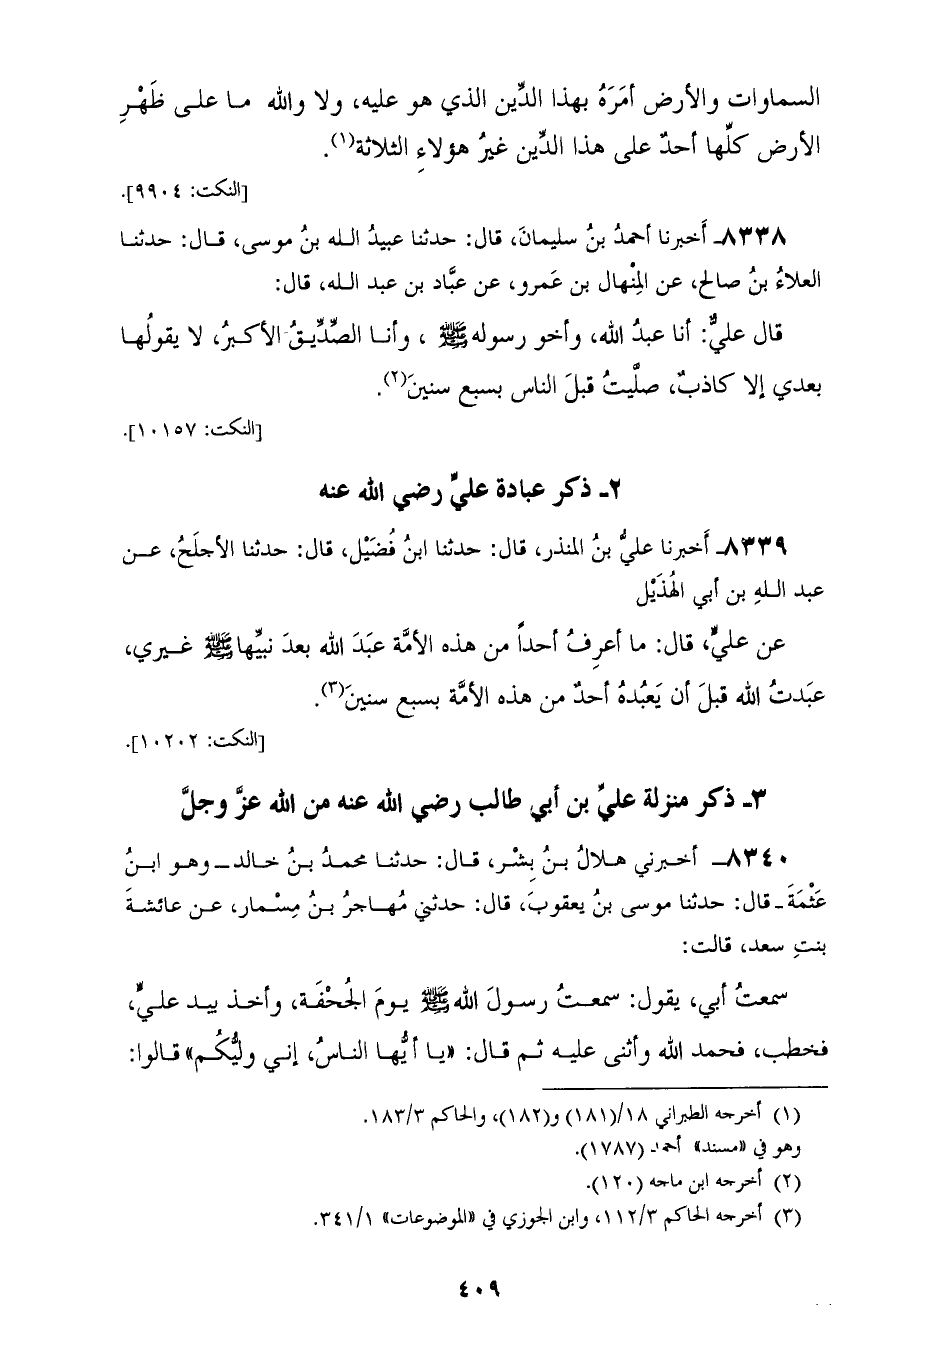 السماوات والأرض أمَرَهُ بهذا الدِّين الذي هو عليه، ولا والله ما على ظَهْرِ
الأرض كلِّها أحدٌ على هذا الدِّين غيرُ هؤلاءِ الثلاثة(١).
[النكت: ٩٩٠٤].
٨٣٣٨ـ أَخبرنا أحمدُ بنُ سليمانَ، قال: حدثنا عبيدُ الله بنُ موسى، قال: حدثنا
العلاءُ بنُ صالح، عن المِنْهال بن عَمرو، عن عبَّاد بن عبد الله، قال:
قال عليٌّ: أنا عبدُ الله، وأخو رسوله ﷺ ، وأنا الصِّدِّيقُ الأكبرُ، لا يقولُها
بعدي إلا كاذبٌ، صلَّيتُ قبلَ الناس بسبع سنينَ(٢).
[النكت: ١٠١٥٧].
٢ـ ذكر عبادة عليٍّ رضي الله عنه
٨٣٣٩ـ أَخبرنا عليُّ بنُ المنذر، قال: حدثنا ابنُ فُضَيْل، قال: حدثنا الأجلَحُ، عن
عبد اللهِ بن أبي الهُذَيْل
عن عليٍّ، قال: ما أَعرِفُ أحداً من هذه الأمَّة عبَدَ الله بعدَ نبيِّها ﷺ غيري،
عبَدتُ الله قبلَ أن يَعبُدهُ أحدٌ من هذه الأمَّة بسبع سنينَ(٣).
[النكت: ١٠٢٠٢].
٣ـ ذكر منزلة عليِّ بن أبي طالب رضي الله عنه من الله عزَّ وجلَّ
٨٣٤٠ـ أخبرني هلالُ بنُ بِشْر، قال: حدثنا محمدُ بنُ خالد ـ وهو ابنُ
عَثْمَةَ ـ قال: حدثنا موسى بنُ يعقوبَ، قال: حدثني مُهاجرُ بنُ مِسْمار، عن عائشةَ
بنتِ سعد، قالت:
سمعتُ أبي، يقول: سمعتُ رسولَ الله ﷺ يومَ الجُحْفَة، وأخذ بيد عليٍّ،
فخطب، فحمد الله وأثنى عليه ثم قال: «يا أيُّها الناسُ، إني وليُّكُم» قالوا:
(١) أخرجه الطبراني ١٨/(١٨١) و(١٨٢)، والحاكم ١٨٣/٣.
وهو في «مسند» أحمد (١٧٨٧).
(٢) أخرجه ابن ماجه (١٢٠).
(٣) أخرجه الحاكم ١١٢/٣، وابن الجوزي في «الموضوعات» ٣٤١/١.
٤٠٩